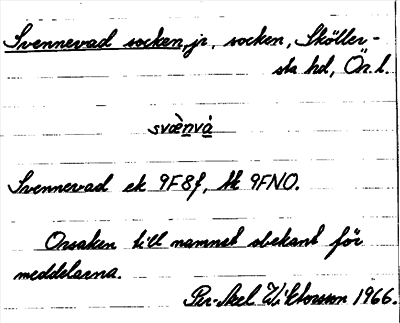 Svennevad socken, jr, socken, Sköller-
sta hd, Ör. l.
svæ̀nvá
Svennevad ek 9F8f, tk 9FNO.
Orsaken till namnet obekant för
meddelarna.
Per-Axel Wiktorsson 1966.